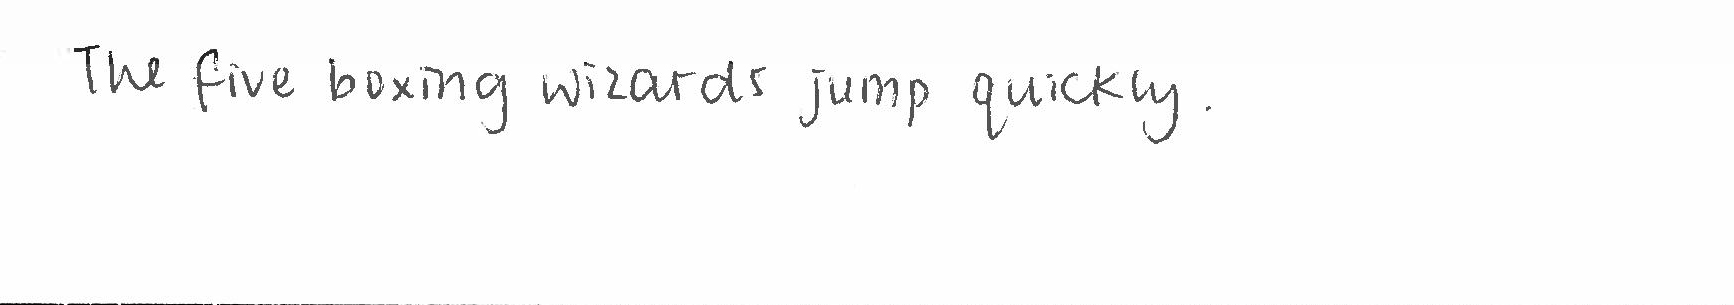 The five boxing wizards jump quickly.